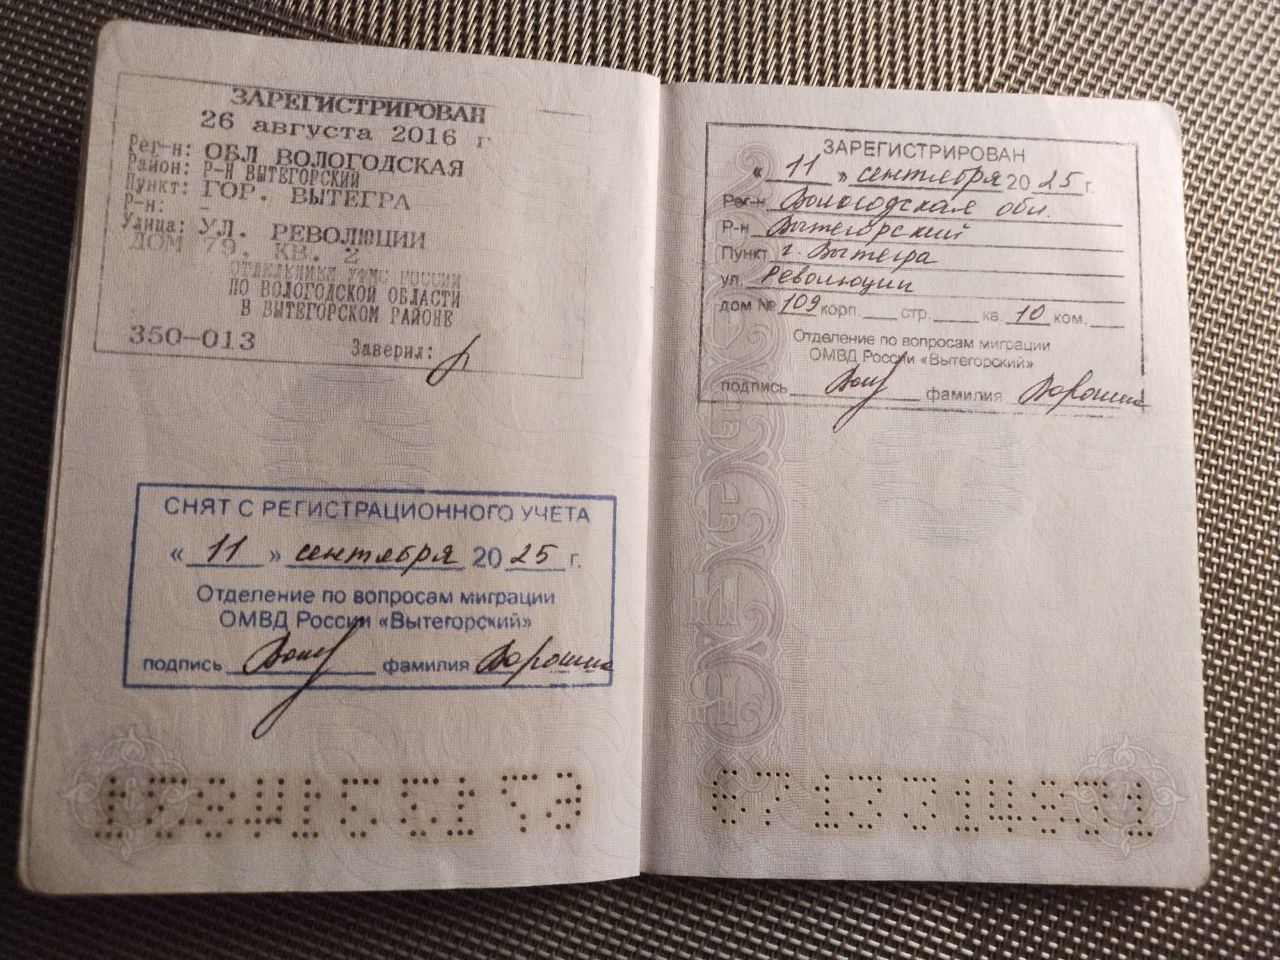 ЗАРЕГИСТРИРОВАН
26 августа 2016 г
Рег-н: ОБЛ ВОЛОГОДСКАЯ
Район: Р-Н ВЫТЕГОРСКИЙ
Пункт: ГОР. ВЫТЕГРА
Р-н: -
Улица: УЛ. РЕВОЛЮЦИИ
ДОМ 79, КВ. 2
ОТДЕЛЕНИЕМ УФМС РОССИИ
ПО ВОЛОГОДСКОЙ ОБЛАСТИ
В ВЫТЕГОРСКОМ РАЙОНЕ
350-013 Заверил:
СНЯТ С РЕГИСТРАЦИОННОГО УЧЕТА
« 11 » сентября 2025 г.
Отделение по вопросам миграции
ОМВД России «Вытегорский»
подпись фамилия
ЗАРЕГИСТРИРОВАН
« 11 » сентября 2025 г.
Рег-н Вологодская обл.
Р-н Вытегорский
Пункт г. Вытегра
ул. Революции
дом № 109 корп. стр. кв. 10 ком.
Отделение по вопросам миграции
ОМВД России «Вытегорский»
подпись фамилия